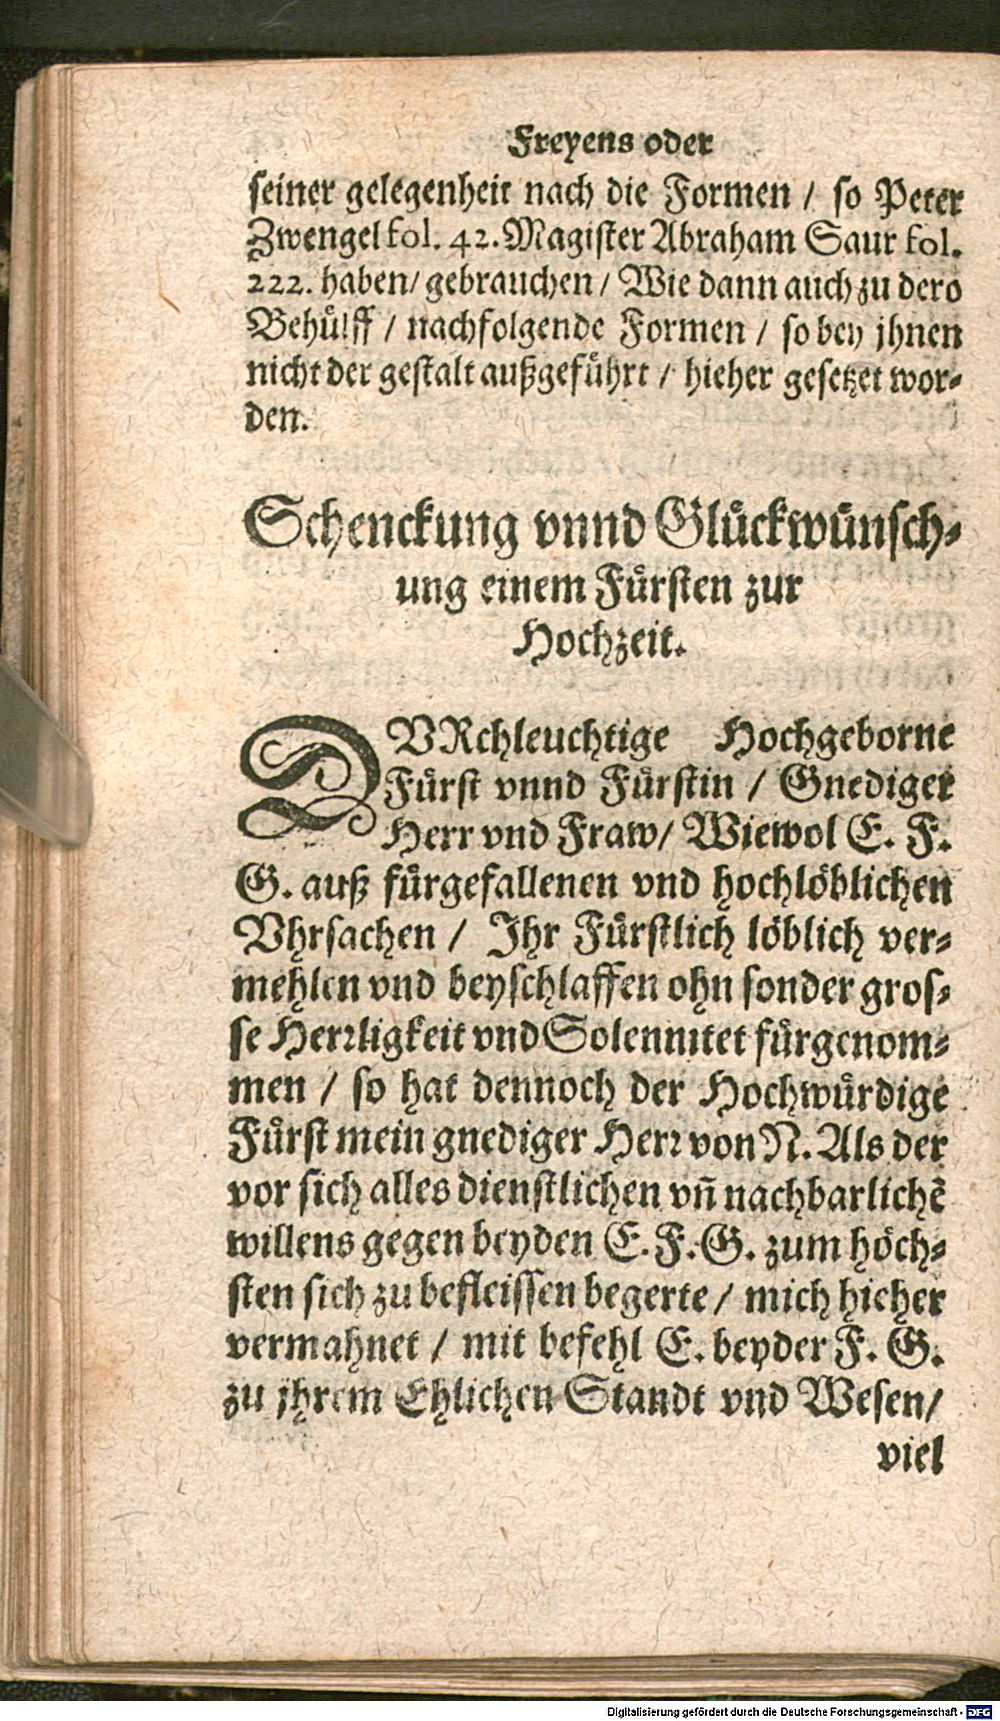 Freyens oder
seiner gelegenheit nach die Formen / so Peter
Zwengel fol. 42. Magister Abraham Saur fol.
222. haben / gebrauchen / Wie dann auch zu dero
Behuͤlff / nachfolgende Formen / so bey jhnen
nicht der gestalt außgefuͤhrt / hieher gesetzet wor-
den.
Schenckung vnnd Gluͤckwuͤnsch-
ung einem Fuͤrsten zur
Hochzeit.
DVRchleuchtige Hochgeborne
Fuͤrst vnnd Fuͤrstin / Gnediger
Herr vnd Fraw / Wiewol E. F.
G. auß fuͤrgefallenen vnd hochloͤblichen
Vhrsachen / Jhr Fuͤrstlich loͤblich ver-
mehlen vnd beyschlaffen ohn sonder gros-
se Herꝛligkeit vnd Solennitet fuͤrgenom-
men / so hat dennoch der Hochwuͤrdige
Fuͤrst mein gnediger Herꝛ von N. Als der
vor sich alles dienstlichen vñ nachbarlichẽ
willens gegen beyden E. F. G. zum hoͤch-
sten sich zu befleissen begerte / mich hieher
vermahnet / mit befehl E. beyder F. G.
zu jhrem Ehlichen Standt vnd Wesen /
viel
Digitalisierung gefördert durch die Deutsche Forschungsgemeinschaft - DFG